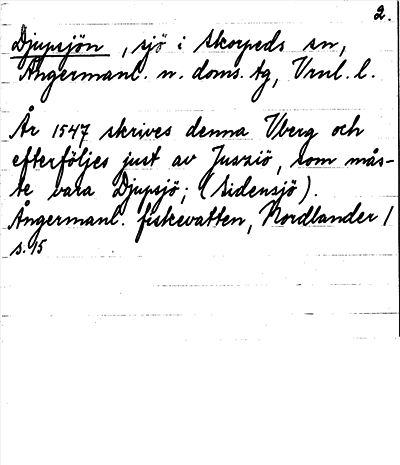 2.
Djupsjön, sjö i Skorpeds sn,
Ångermanl. n. doms. tg, Vrnl. l.
År 1547 skrives denna Vberg och
efterföljes just av Jusziö, som mås-
te vara Djupsjö; (Sidensjö).
Ångermanl. fiskevatten, Nordlander 1
s. 15